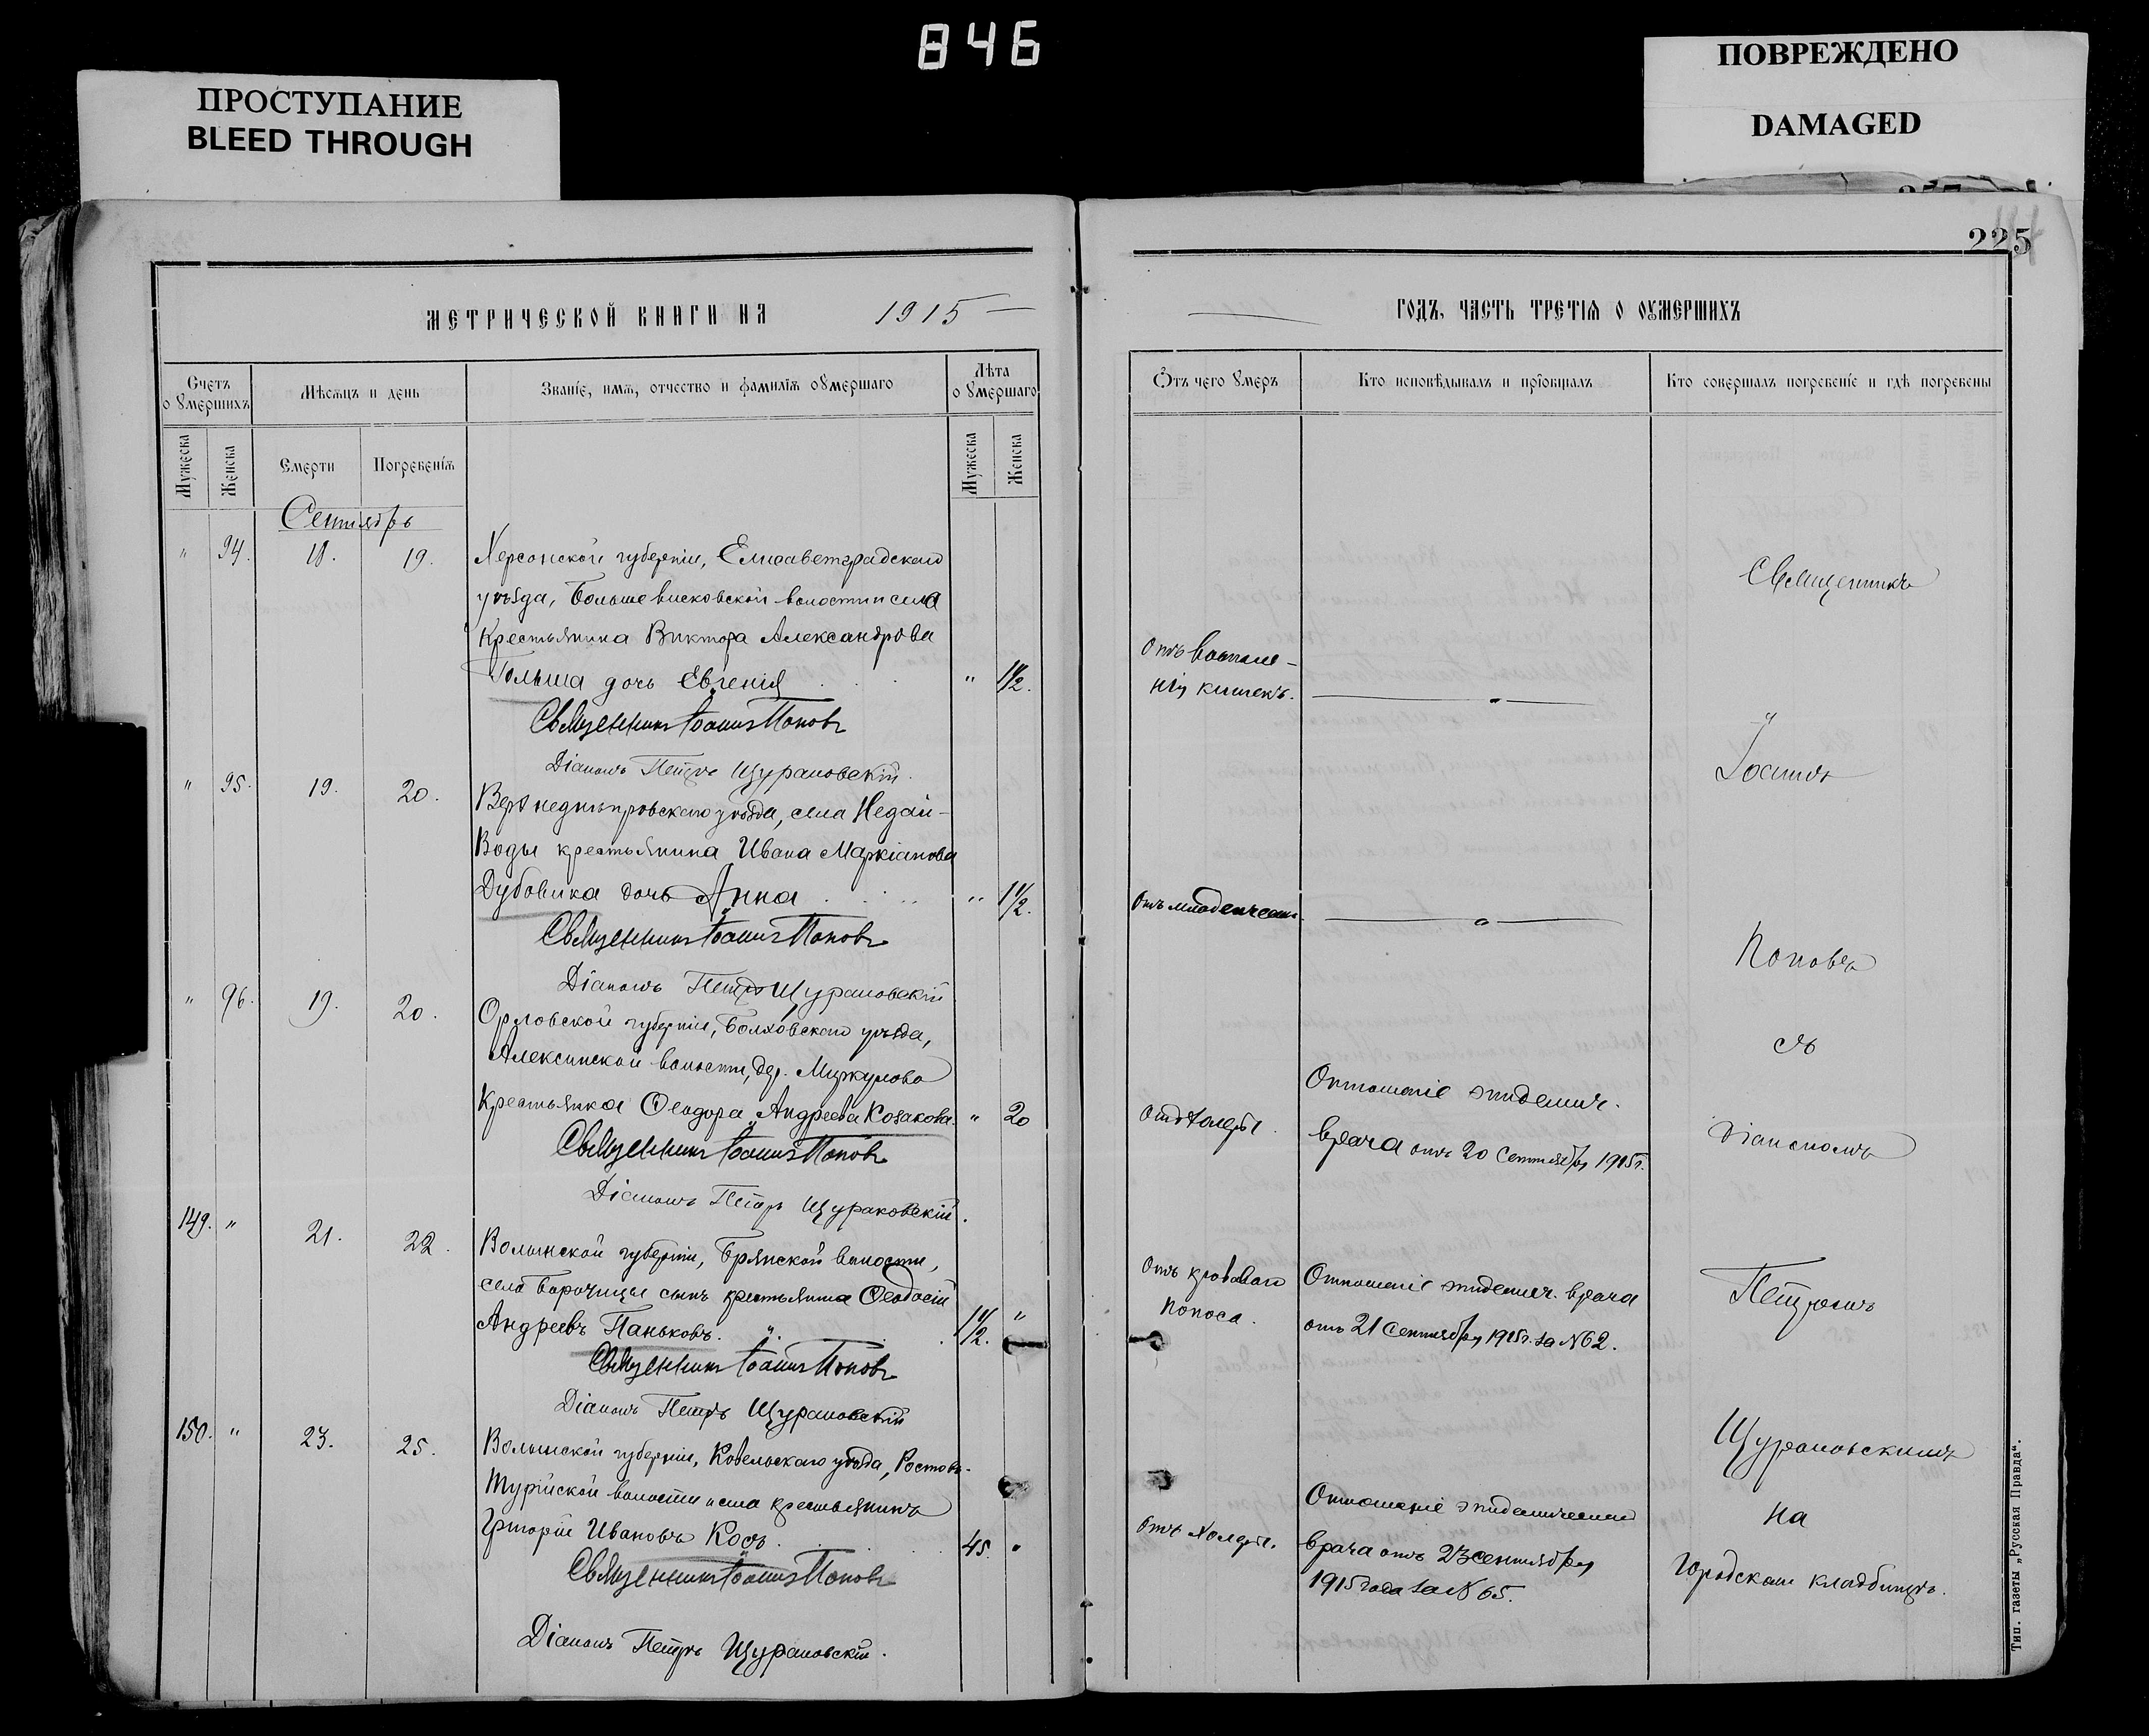 846
ПРОСТУПАНИЕ
BLEED THROUGH
ПОВРЕЖДЕНО
DAMAGED
225
МЕТРИЧЕСКОЙ КНИГИ НА 1915
ГОДЪ, ЧАСТЬ ТРЕТІЯ О ОУМЕРШИХЪ
Счетъ о умершихъ
Мѣсяцъ и день
Званіе, имя, отчество и фамилія оумершаго
Лѣта о умершаго
Мужеска
Женска
Смерти
Погребенія
Мужеска
Женска
Отъ чего умеръ
Кто исповѣдывалъ и пріобщалъ
Кто совершалъ погребеніе и гдѣ погребены
Сентябрь
" 94. 18. 19.
Херсонской губерніи, Елисаветградскаго
уѣзда, Больше висковской волости и села
Крестьянина Виктора Александрова
Гольша дочь Евгенія " 1 1/2.
Отъ воспале-
нія кишекъ.
Священникъ Іоаннъ Поповъ
Діаконъ Петръ Щурановскій.
" 95. 19. 20.
Верхнеднѣпровскаго уѣзда, села Недай-
Воды крестьянина Ивана Маркіанова
Дубовика дочь Анна " 1 1/2.
Отъ младенческ.
Священникъ Іоаннъ Поповъ
Діаконъ Петръ Щурановскій
" 96. 19. 20.
Орловской губерніи, Болховскаго уѣзда,
Алексинской волости, дер. Меркулово
Крестьянка Ѳеодора Андреева Козакова. " 20
Отъ холеры.
Отношеніе эпидемич.
врача отъ 20 Сентября 1915 г.
Священникъ Іоаннъ Поповъ
Діаконъ Петръ Щурановскій.
149. " 21. 22.
Волынской губерніи, Брянской волости,
села Борочицы сынъ крестьянина Ѳеодосій
Андреевъ Паньковъ. 1 1/2. "
Отъ кроваваго
поноса.
Отношеніе эпидемич. врача
отъ 21 Сентября 1915 г. за № 62.
Священникъ Іоаннъ Поповъ
Діаконъ Петръ Щурановскій
150. " 23. 25.
Волынской губерніи, Ковельскаго уѣзда,
Турійской волости и села крестьянинъ
Григорій Ивановъ Косъ. 45. "
Отъ холеры.
Отношеніе эпидемическаго
врача отъ 23 сентября
1915 года за № 65.
Священникъ Іоаннъ Поповъ
Діаконъ Петръ Щурановскій.
Священникъ
Іоаннъ
Поповъ
съ
Діакономъ
Петромъ
Щурановскимъ
на
Городскомъ кладбищѣ.
Тип. газеты „Русская Правда".